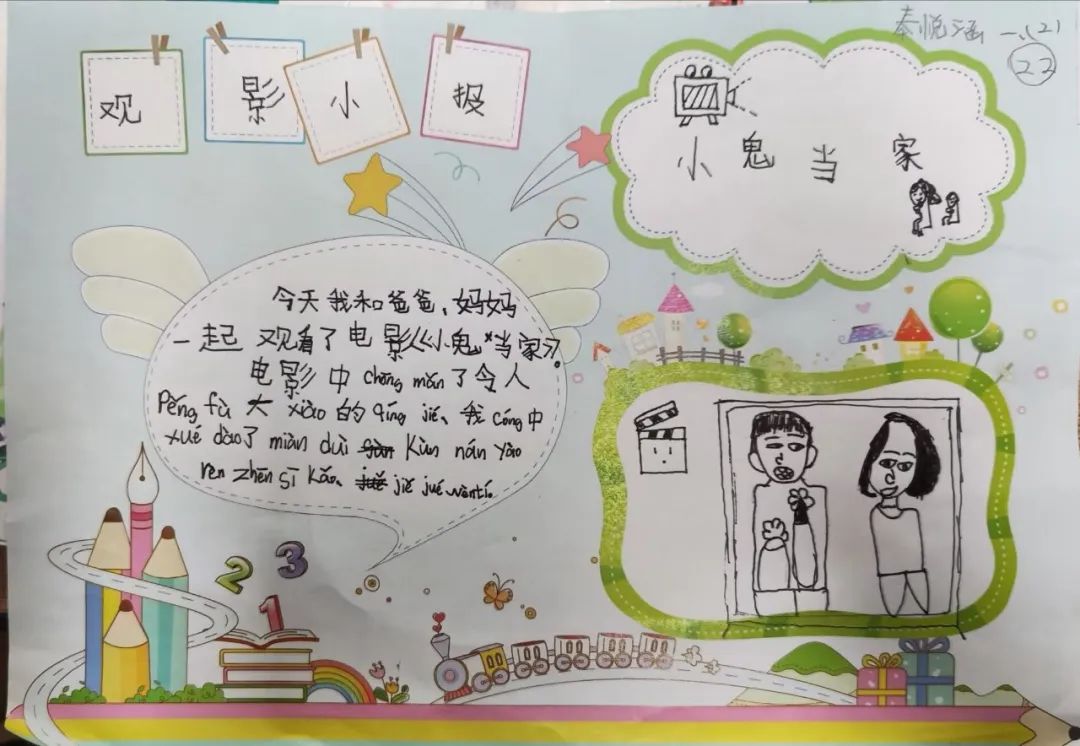 秦悦涵 一、(2)
22
观影小报
小鬼当家
今天我和爸爸、妈妈
一起观看了电影《小鬼当家》。
电影中chōng mǎn了令人
Pěng fù大xiào的qíng jié、我cóng中
xué dào了miàn duì kùn nán yào
rèn zhēn sī kǎo、jiě jué wèntí。
2 3
1